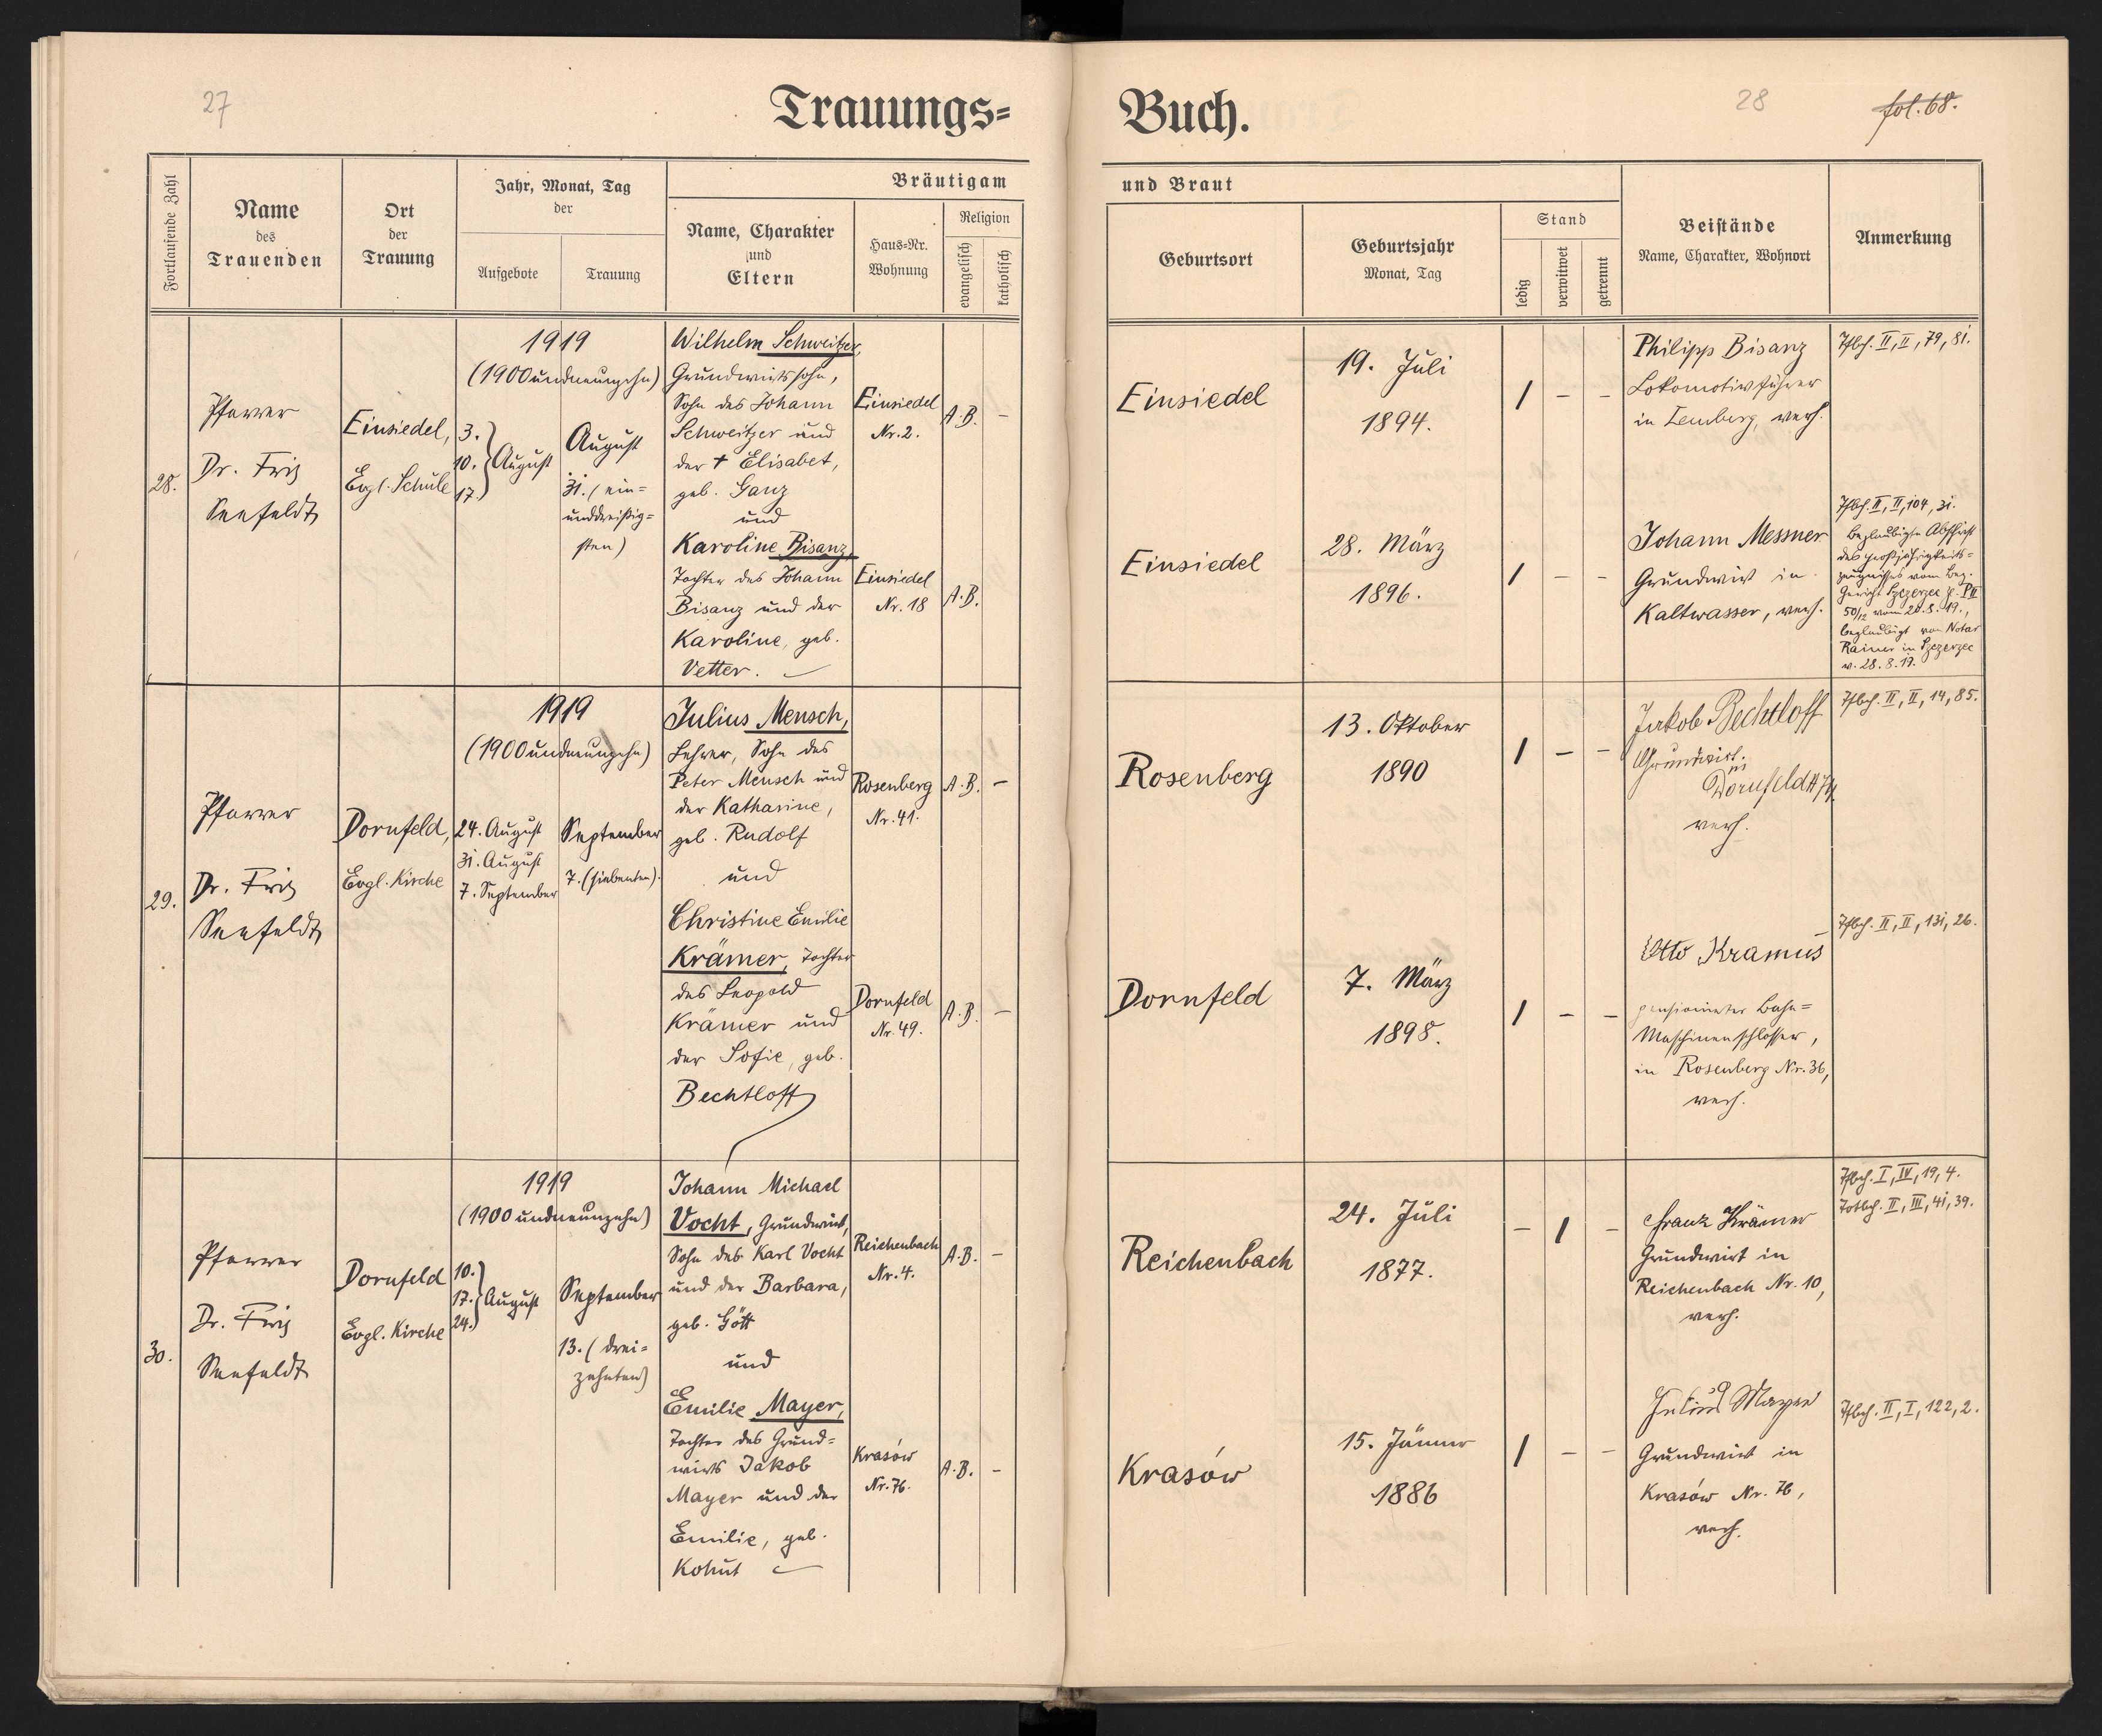 27
Trauungs=
Fortlaufende Zahl
Name
des
Trauenden
Ort
der
Trauung
Jahr, Monat, Tag
der
Aufgebote
Trauung
Bräutigam
Name, Charakter
und
Eltern
Haus=Nr.
Wohnung
Religion
evangelisch
katholisch
28.
Pfarrer
Dr. Fritz
Seefeldt
Einsiedel,
Evgl. Schule
1919
(1900undneunzehn)
3.
10. August
17.
August
31. (ein=
unddreißig=
sten)
Wilhelm Schweitzer,
Grundwirtssohn,
Sohn des Johann
Schweitzer und
der † Elisabet,
geb. Ganz
und
Karoline Bisanz,
Tochter des Johann
Bisanz und der
Karoline, geb.
Vetter.
Einsiedel
Nr. 2.
A.B. –
Einsiedel
Nr. 18
A.B.
29.
Pfarrer
Dr. Fritz
Seefeldt
Dornfeld,
Evgl. Kirche
1919
(1900undneunzehn)
24. August
31. August
7. September
September
7. (siebenten).
Julius Mensch,
Lehrer, Sohn des
Peter Mensch und
der Katharine,
geb. Rudolf
und
Christine Emilie
Krämer, Tochter
des Leopold
Krämer und
der Sofie, geb.
Bechtloff
Rosenberg
Nr. 41.
A.B. –
Dornfeld
Nr. 49.
A.B. –
30.
Pfarrer
Dr. Fritz
Seefeldt
Dornfeld
Evgl. Kirche
1919
(1900 undneunzehn)
10.
17. August
24.
September
13. (drei=
zehnten)
Johann Michael
Vocht, Grundwirt,
Sohn des Karl Vocht
und der Barbara,
geb. Gött
und
Emilie Mayer,
Tochter des Grund=
wirts Jakob
Mayer und der
Emilie, geb.
Kohut
Reichenbach
Nr. 4.
A.B. –
Krasów
Nr. 76.
A.B. –
Buch.
28
fol. 68.
und Braut
Geburtsort
Geburtsjahr
Monat, Tag
Stand
ledig
verwitwet
getrennt
Beistände
Name, Charakter, Wohnort
Anmerkung
Einsiedel
19. Juli
1894.
/ – –
Philipp Bisanz
Lokomotivführer
in Lemberg, verh.
Tfbch. II, II, 79, 81.
Einsiedel
28. März
1896.
/ – –
Johann Messner
Grundwirt in
Kaltwasser, verh.
Tfbch. II, II, 104, 31.
Beglaubigte Abschrift
des Großjährigkeits=
zeugnisses vom Bez.
Gericht Szczerzec
50/12 vom 20.8.19.,
beglaubigt von Notar
Rainer in Szczerzec
v. 28.8.19.
Rosenberg
13. Oktober
1890
/ – –
Jakob Bechtloff
Grundwirt.
in
Dornfeld
verh.
Tfbch. II, II, 14, 85.
Dornfeld
7. März
1898.
/ – –
Otto Kramus
pensionierter Bahn=
Maschinenschlosser,
in Rosenberg Nr. 36,
verh.
Tfbch. II, II, 131, 26.
Reichenbach
24. Juli
1877.
– / –
Franz Krämer
Grundwirt in
Reichenbach Nr. 10,
verh.
Tfbch. I, IV, 19, 4.
Totbch. II, III, 41, 39.
Krasów
15. Jänner
1886
/ – –
Julius Mayer
Grundwirt in
Krasów Nr. 76,
verh.
Tfbch. II, I, 122, 2.